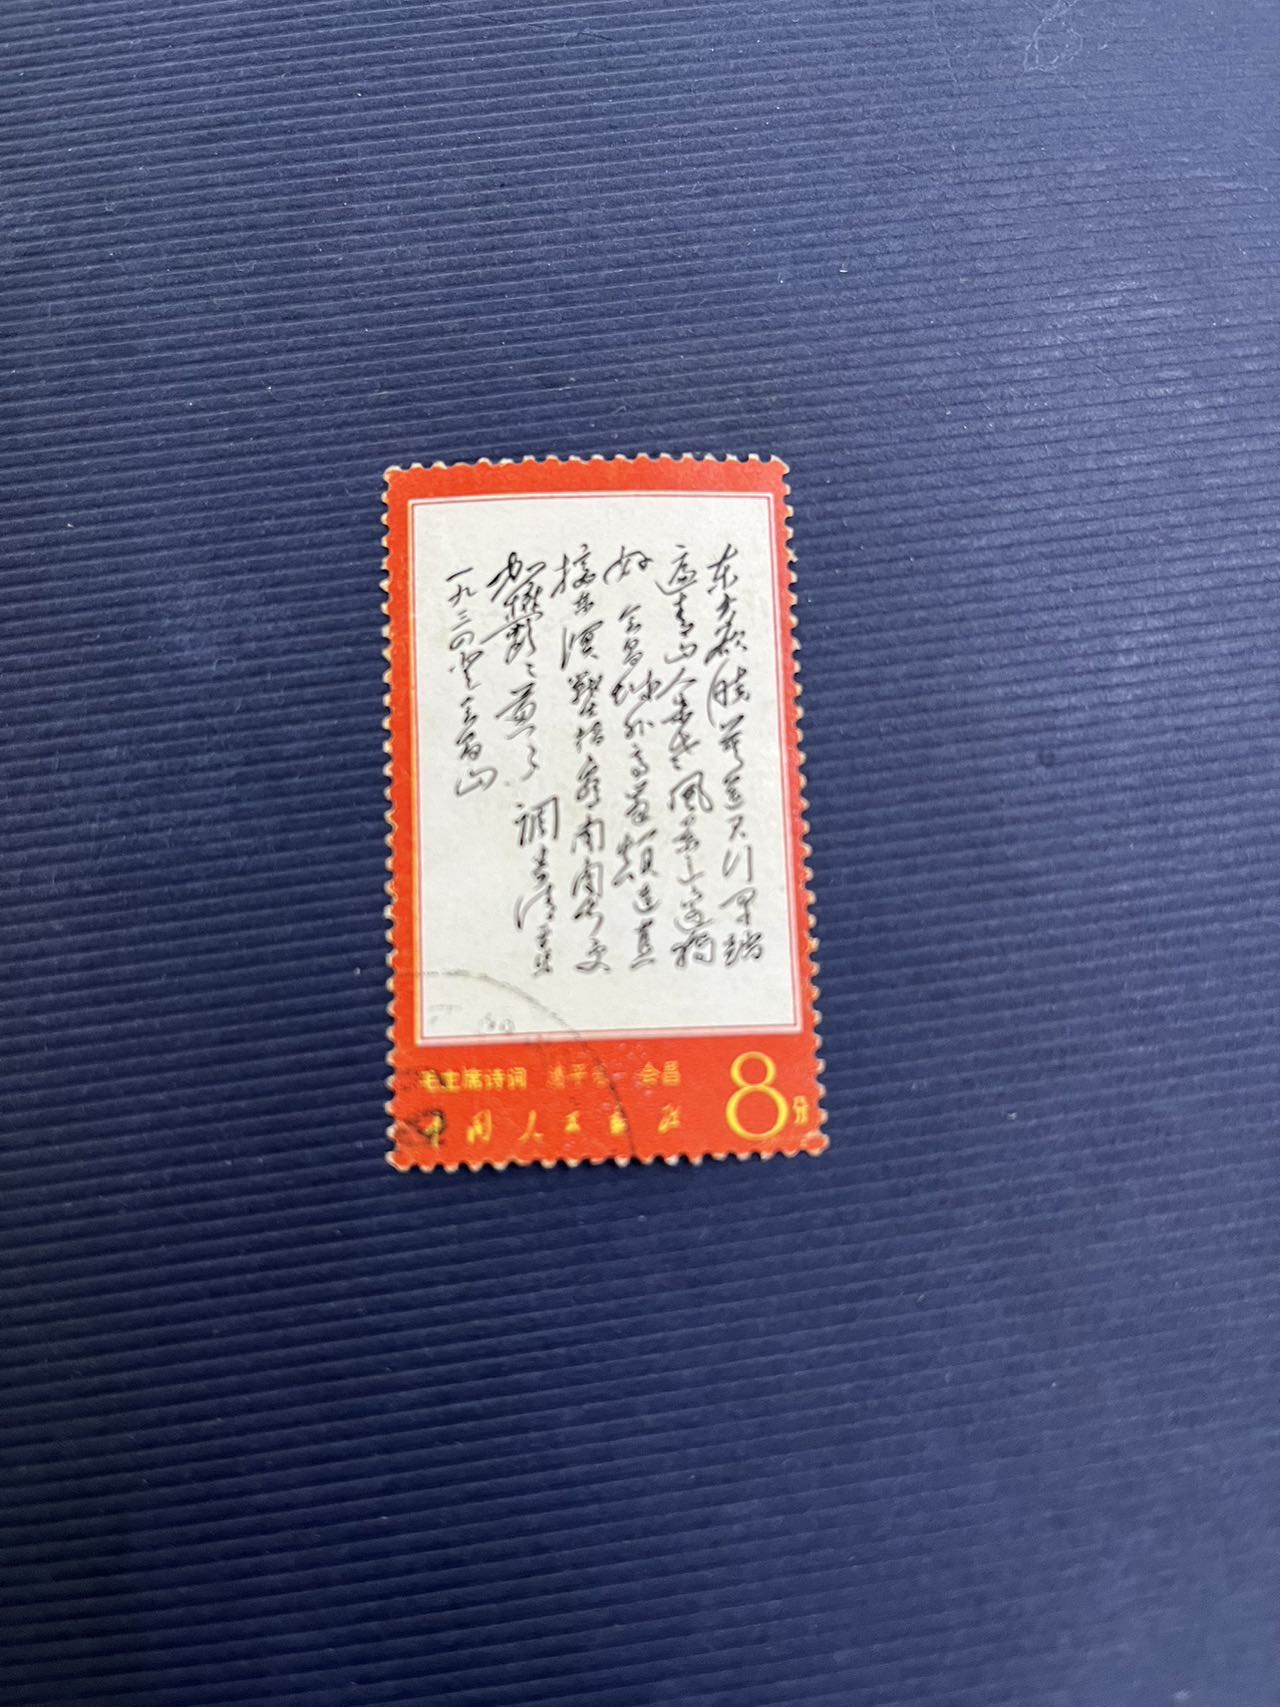 东方欲晓莫道君行早踏
遍青山人未老風景这边独
好 会昌城外高峯颠连直
接东溟戰士指看南粤更
加鬱々葱々 調寄清平乐
一九三四登会昌山
毛主席诗词 清平乐 会昌
中国人民邮政
8分